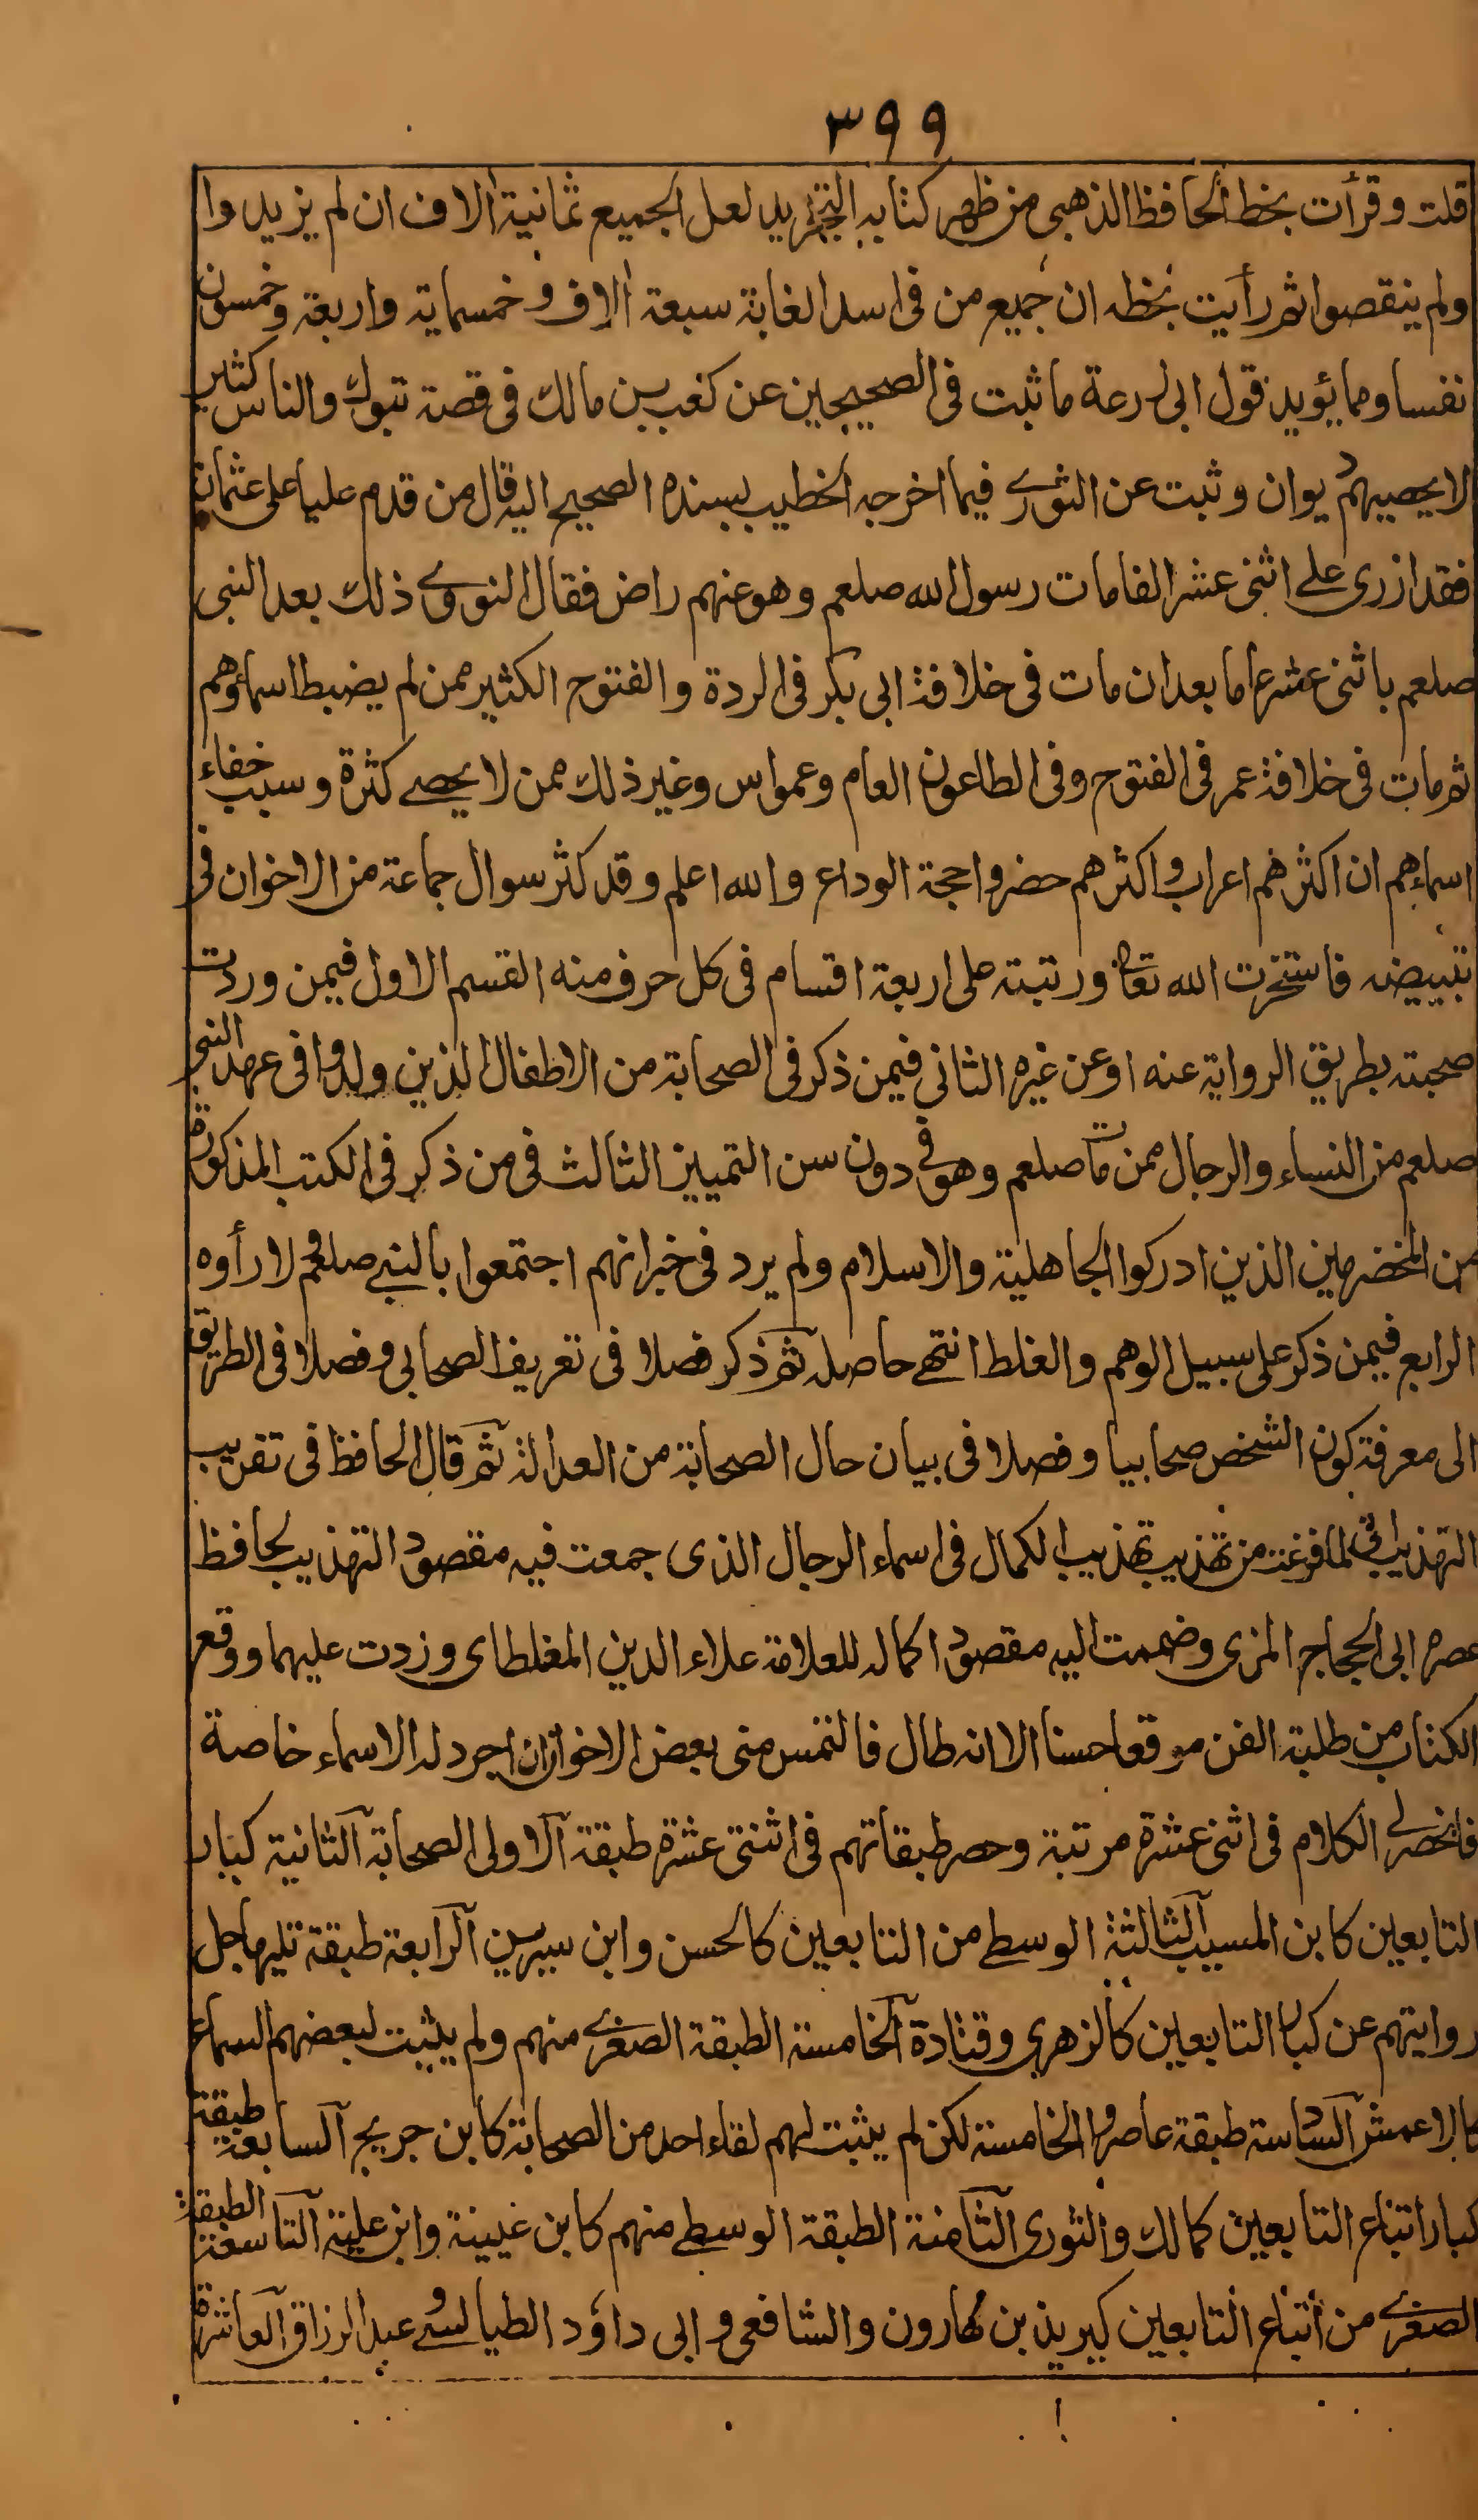 ٣٩٩
قلت وقرأت بخط الحافظ الذهبي من ظهر كتابه التجريد لعل الجميع ثمانية الاف ان لم يزيدوا
ولم ينقصوا ثم رأيت بخطه ان جميع من فى اسد الغابة سبعة الاف و خمسماية واربعة وخمسون
نفسا ومما يؤيد قول ابى زرعة ما ثبت فى الصحيحين عن كعب بن مالك فى قصة تبوك والناس كثير
لا يحصيهم ديوان وثبت عن الثوري فيما اخرجه الخطيب بسنده الصحيح اليه قال من قدم عليا على عثمان
فقد ازرى على اثنى عشر الفا مات رسول الله صلعم وهو عنهم راض فقال النووي ذلك بعد النبى
صلعم باثنى عشر عاما بعد ان مات فى خلافة ابى بكر فى الردة والفتوح الكثير ممن لم يضبط اسماؤهم
ثم مات فى خلافة عمر فى الفتوح وفى الطاعون العام وعمواس وغير ذلك ممن لا يحصى كثرة وسبب خفاء
اسماءهم ان اكثرهم اعراب واكثرهم حضروا حجة الوداع والله اعلم وقد كثر سوال جماعة من الاخوان فى
تبييضه فاستخرت الله تعالى ورتبته على اربعة اقسام فى كل حرف منه القسم الاول فيمن وردت
صحبته بطريق الرواية عنه او عن غيره الثانى فيمن ذكر فى الصحابة من الاطفال الذين ولدوا فى عهد النبي
صلعم من النساء والرجال ممن مات صلعم وهو فى دون سن التمييز الثالث فى من ذكر فى الكتب المذكورة
من المخضرمين الذين ادركوا الجاهلية والاسلام ولم يرد فى خبر انهم اجتمعوا بالنبي صلعم ولا رأوه
الرابع فيمن ذكر على سبيل الوهم والغلط انتهى حاصله ثم ذكر فصلا فى تعريف الصحابي وفصلا فى الطريق
الى معرفة كون الشخص صحابيا وفصلا فى بيان حال الصحابة من العدالة ثم قال الحافظ فى تقريب
التهذيب انى لما فرغت من تهذيب تهذيب الكمال فى اسماء الرجال الذى جمعت فيه مقصود التهذيب لحافظ
عصره ابى الحجاج المزى وضممت اليه مقصود اكماله للعلامة علاء الدين المغلطاى وزدت عليهما ووقع
الكتاب من طلبة الفن موقعا حسنا الا انه طال فالتمس منى بعض الاخوان ان اجرد له الاسماء خاصة
فانحصر لي الكلام فى اثنى عشرة مرتبة وحصر طبقاتهم فى اثنتى عشرة طبقة الاولى الصحابة الثانية كبار
التابعين كابن المسيب الثالثة الوسطى من التابعين كالحسن وابن سيرين الرابعة طبقة تليها جل
روايتهم عن كبار التابعين كالزهري وقتادة الخامسة الطبقة الصغرى منهم ولم يثبت لبعضهم السماع
كالاعمش السادسة طبقة عاصروا الخامسة لكن لم يثبت لهم لقاء احد من الصحابة كابن جريج السابعة طبقة
كبار اتباع التابعين كمالك والثورى الثامنة الطبقة الوسطى منهم كابن عيينة وابن علية التاسعة الطبقة
الصغرى من أتباع التابعين كيزيد بن هارون والشافعى و ابى داؤد الطيالسى و عبد الرزاق العاشرة